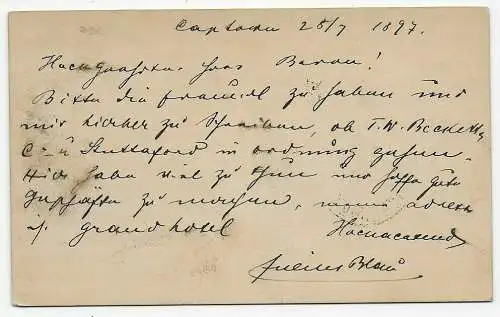 Captown 28/7 1897.
Hochgeehrter Herr Baron!
Bitte die freundl zu haben und
mir hierher zu schreiben, ob T. W. Beckett
C u Stuttaford in ordnung gehen.
Hier habe viel zu thun und hoffe gute
Geschäfte zu machen, meine adresse
is grand hotel
Hochachtend
Julius Blau